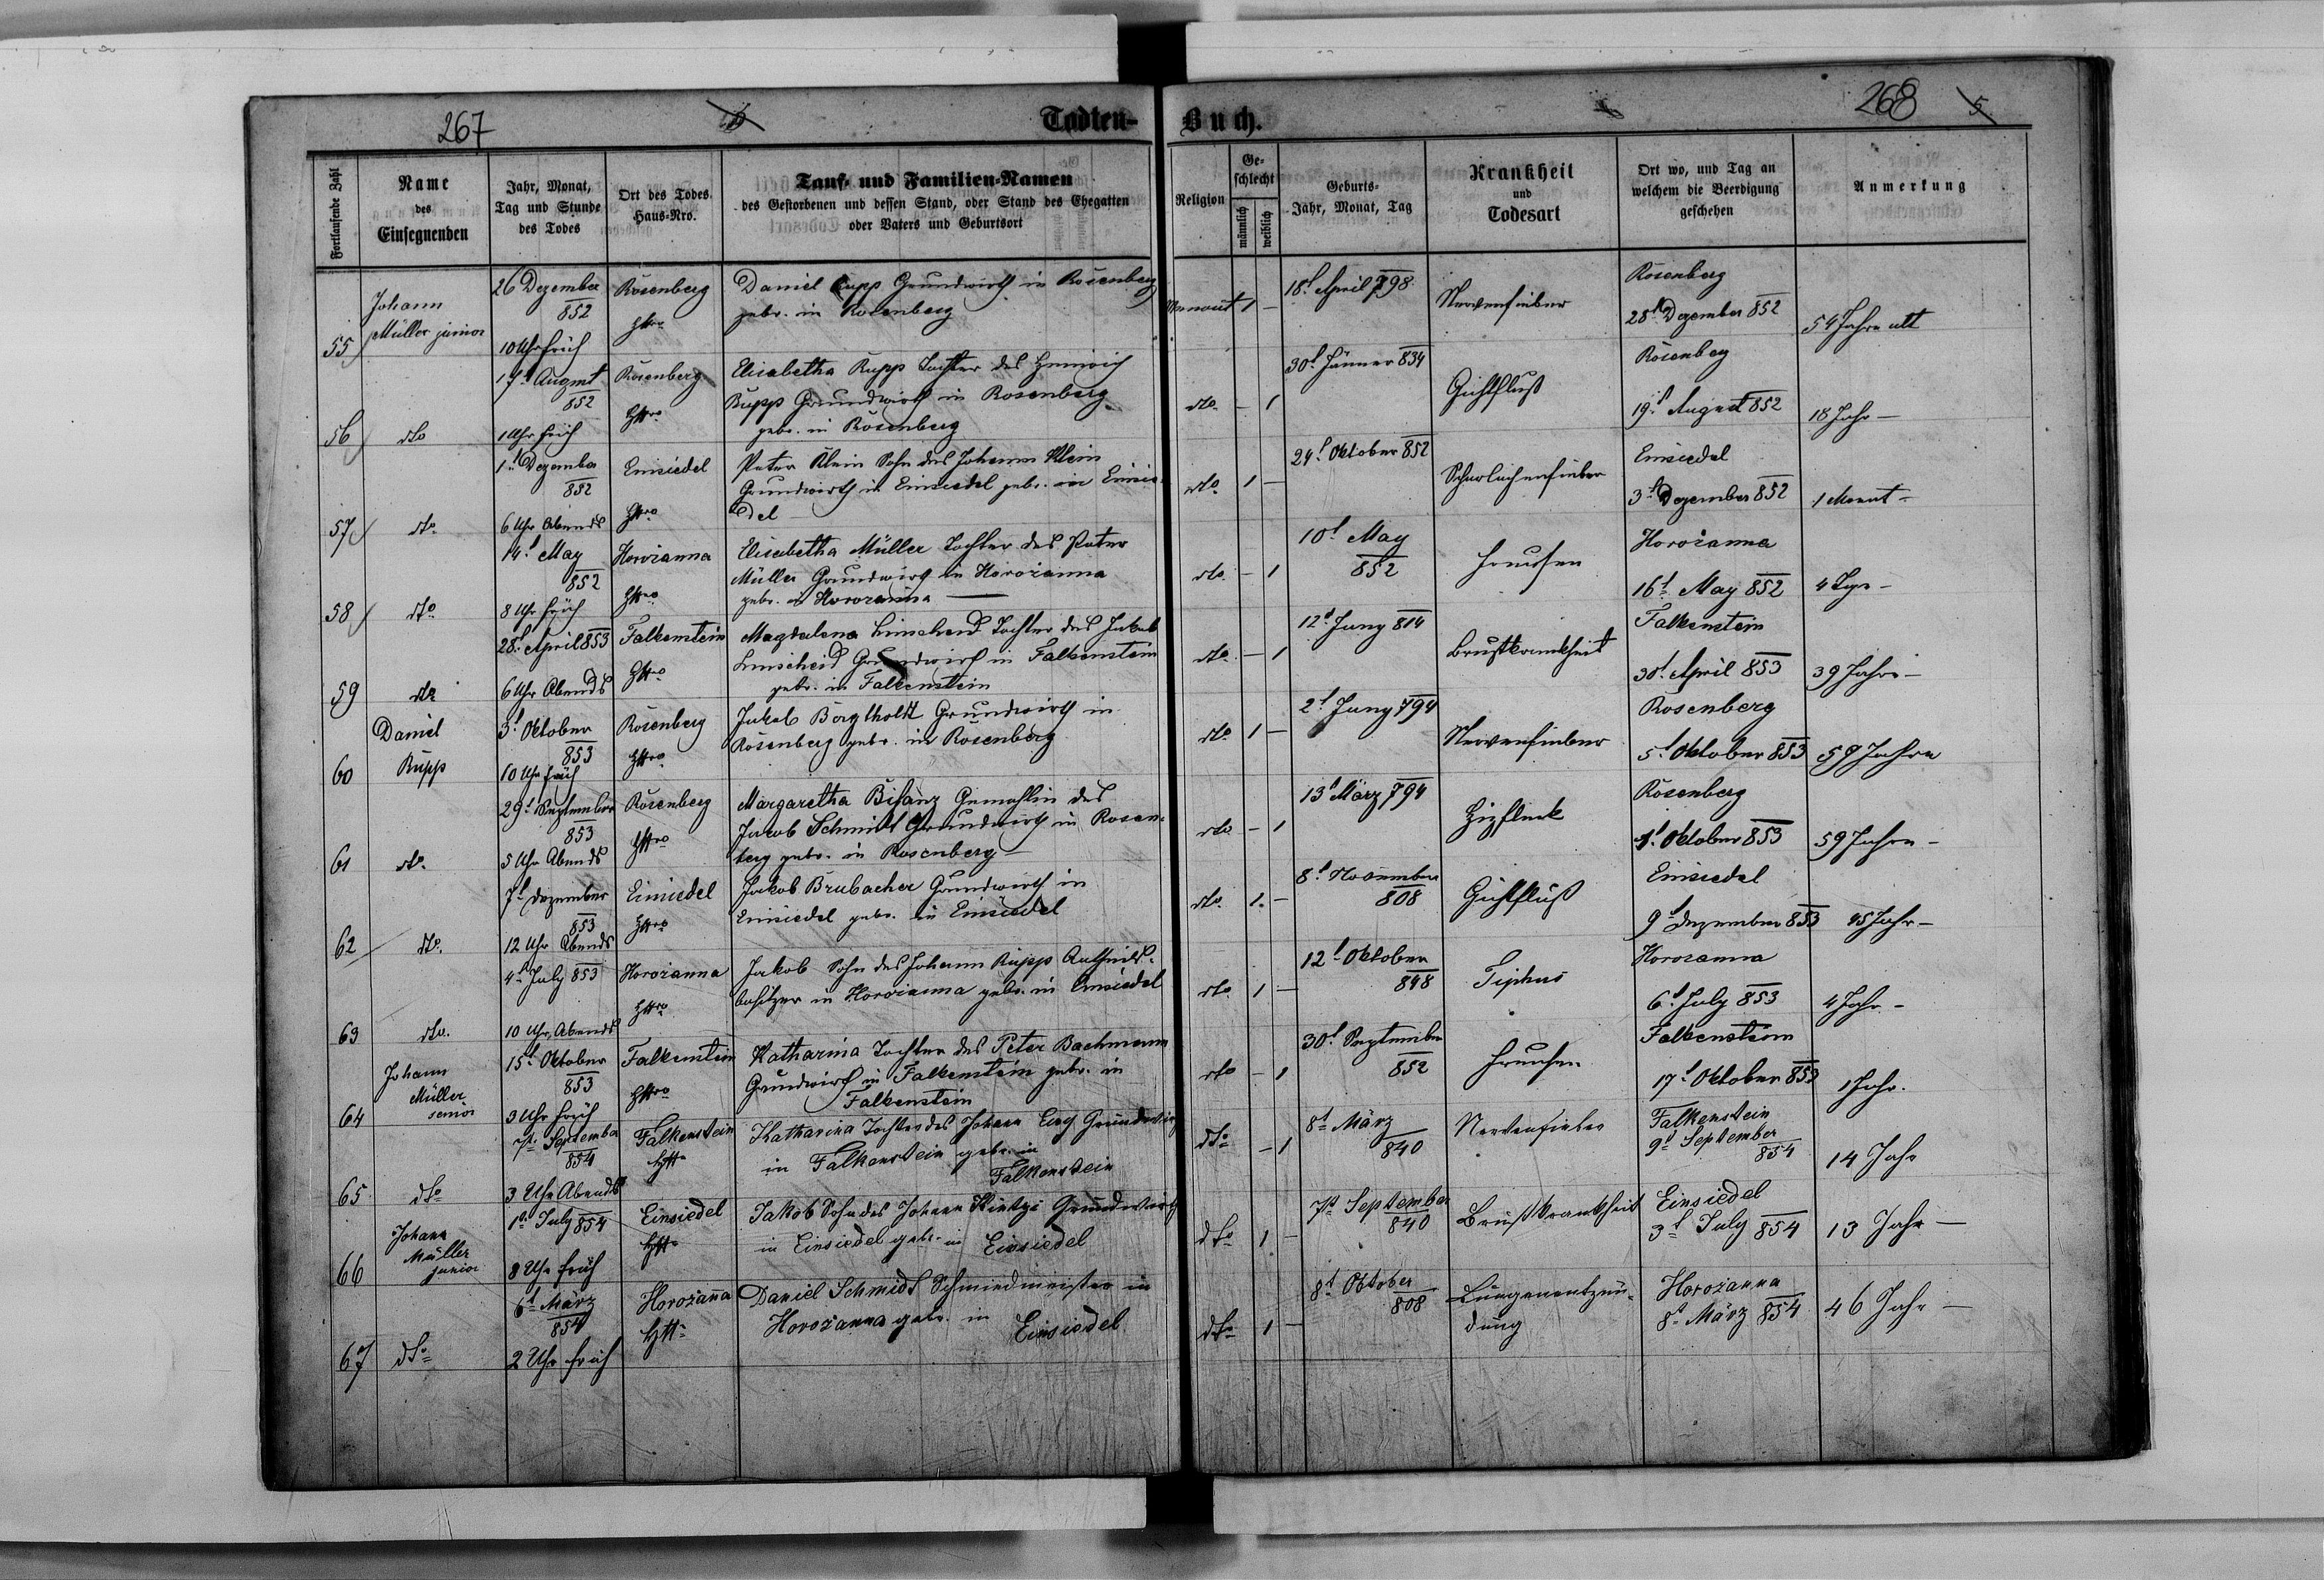 267
Todten-
Buch.
268
5
Fortlaufende Zahl
Name des Einsegnenden
Jahr, Monat, Tag und Stunde des Todes
Ort des Todes. Haus-Nro.
Tauf- und Familien-Namen
des Gestorbenen und dessen Stand, oder Stand des Ehegatten
oder Vaters und Geburtsort
Religion
Geschlecht
männlich
weiblich
Geburts-
Jahr, Monat, Tag
Krankheit
und
Todesart
Ort wo, und Tag an
welchem die Beerdigung
geschehen
Anmerkung
55
Johann
Müller junior
26 Dezember
852
10 Uhr früh
Rosenberg
Daniel Rupp Grundwirth in Rosenberg
gebr. in Rosenberg
1 -
18t April 798
Nervenfieber
Rosenberg
28t Dezember 852
54 Jahre alt
56
dto
17t August
852
1 Uhr früh
Rosenberg
Elisabetha Rupp Tochter des Heinrich
Rupp Grundwirth in Rosenberg
gebr. in Rosenberg
dto.
- 1
30t Jänner 834
Gichtfluß
Rosenberg
19t August 852
18 Jahr -
57
dto.
1t Dezember
852
6 Uhr Abends
Einsiedel
Peter Klein Sohn des Johann Klein
Grundwirth in Einsiedel gebr. in Einsie-
del
dto.
1 -
24t Oktober 852
Scharlachenfieber
Einsiedel
3t Dezember 852
1 Monat -
58
dto.
14t May
852
8 Uhr früh
Horozanna
Elisabetha Müller Tochter des Peter
Müller Grundwirth in Horozanna
gebr. in Horozanna
dto.
- 1
10t May
852
Horozanna
16t May 852
4 Tage -
59
dto
28t April 853
6 Uhr Abends
Falkenstein
Magdalena Linscheid Tochter des Jakob
Linscheid Grundwirth in Falkenstein
gebr. in Falkenstein
dto.
- 1
12t Juny 814
Brustkrankheit
Falkenstein
30t April 853
39 Jahre -
60
Daniel
Rupp
3t Oktober
853
10 Uhr früh
Rosenberg
Jakob Bergtholdt Grundwirth in
Rosenberg gebr. in Rosenberg
dto.
1 -
2t Juny 794
Nervenfieber
Rosenberg
5t Oktober 853
59 Jahre
61
dto.
29t September
853
5 Uhr Abends
Rosenberg
Margaretha Bisanz Gemahlin des
Jakob Schmidt Grundwirth in Rosen-
berg gebr. in Rosenberg -
dto.
- 1
13t März 794
Rosenberg
1t Oktober 853
59 Jahre -
62
dto.
7t Dezember
853
12 Uhr Abends
Einsiedel
Jakob Brubacher Grundwirth in
Einsiedel gebr. in Einsiedel
dto.
1. -
8t November
808
Gichtfluß
Einsiedel
9t Dezember 853
45 Jahr -
63
dto.
4t July 853
10 Uhr Abends
Horozanna
Jakob Sohn des Johann Rupp Antheils-
besitzer in Horozanna gebr. in Einsiedel
dto.
1 -
12t Oktober
848
Tiphus
Horozanna
6t July 853
4 Jahr -
64
Johann
Müller
senior
15t Oktober
853
3 Uhr früh
Falkenstein
Katharina Tochter des Peter Bachmann
Grundwirth in Falkenstein gebr. in
Falkenstein
dto
- 1
30t September
852
Falkenstein
17t Oktober 853
1 Jahr.
65
dto
7t September
854
3 Uhr Abends
Falkenstein
Katharina Tochter des Johann Ewy Grundwirth
in Falkenstein gebr. in
Falkenstein
dto
- 1
8t März
840
Nervenfieber
Falkenstein
9t September
854
14 Jahr
66
Johann
Müller
junior
1t July 854
8 Uhr früh
Einsiedel
Jakob Sohn des Johann Kintzi Grundwirth
in Einsiedel gebr. in Einsiedel
dto
1 -
7t September
840
Brustkrankheit
Einsiedel
3t July 854
13 Jahr -
67
dto
6t März
854
2 Uhr früh
Horozanna
Daniel Schmidt Schmiedmeister in
Horozanna gebr. in
Einsiedel
dto
1 -
8t Oktober
808
Lungenentzün-
dung
Horozanna
8t März 854
46 Jahr -